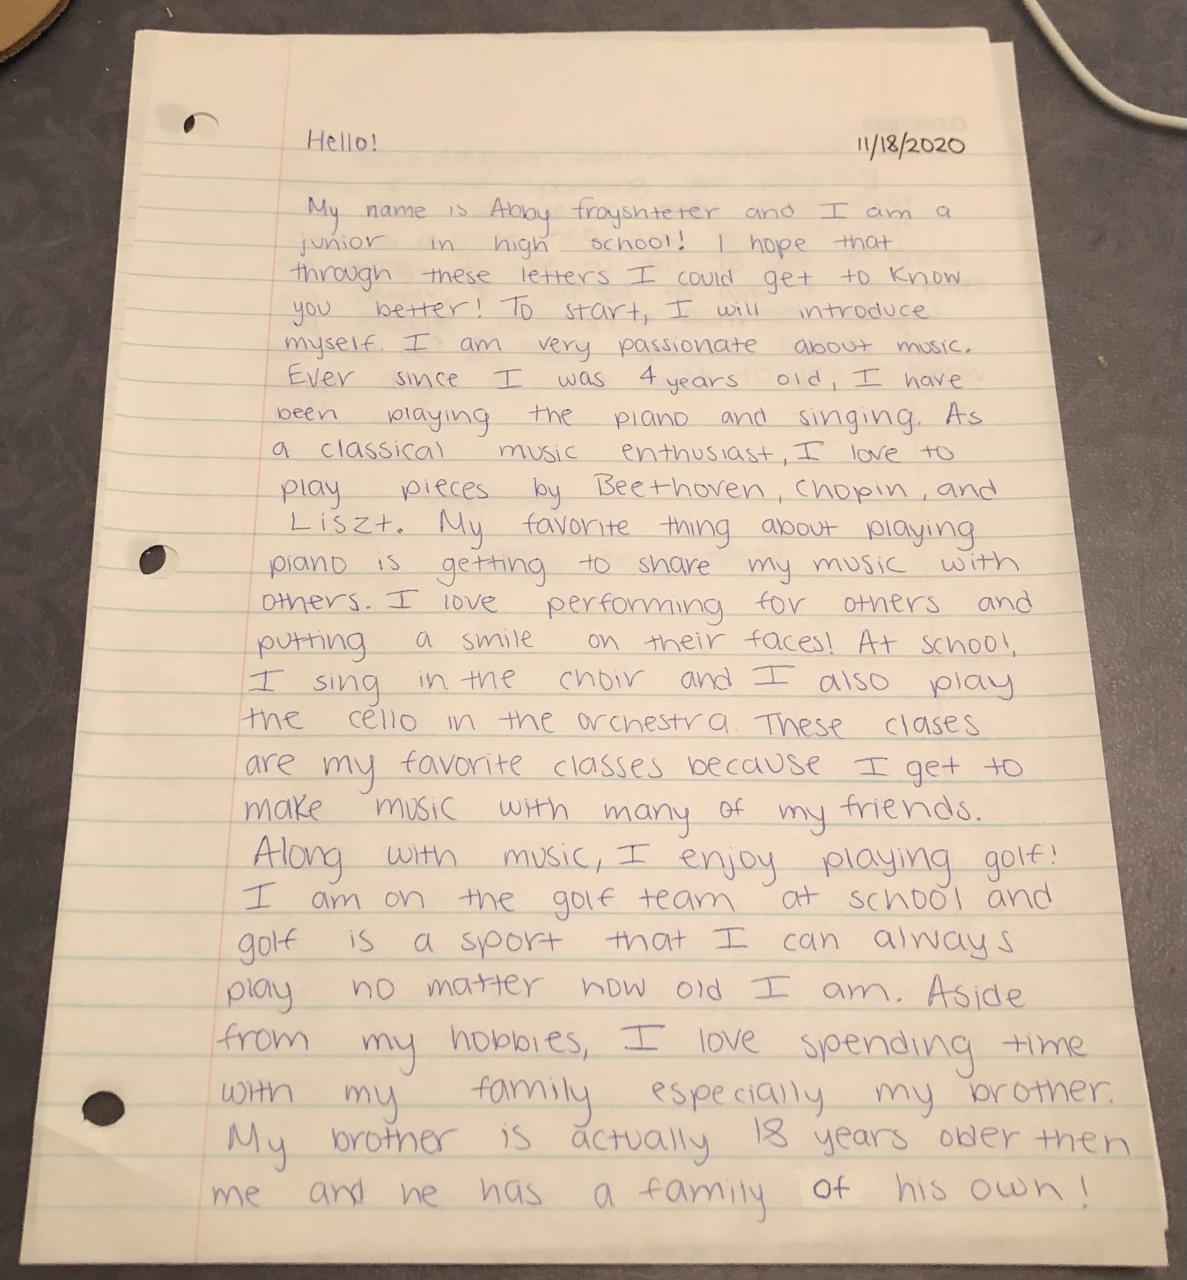 Hello! 11/18/2020
My name is Abby froyshteter and I am a
junior in high school! I hope that
through these letters I could get to know
you better! To start, I will introduce
myself. I am very passionate about music.
Ever since I was 4 years old, I have
been playing the piano and singing. As
a classical music enthusiast, I love to
play pieces by Beethoven, Chopin, and
Liszt. My favorite thing about playing
piano is getting to share my music with
others. I love performing for others and
putting a smile on their faces! At school,
I sing in the choir and I also play
the cello in the orchestra. These clases
are my favorite classes because I get to
make music with many of my friends.
Along with music, I enjoy playing golf!
I am on the golf team at school and
golf is a sport that I can always
play no matter how old I am. Aside
from my hobbies, I love spending time
with my family especially my brother.
My brother is actually 18 years older then
me and he has a family of his own!